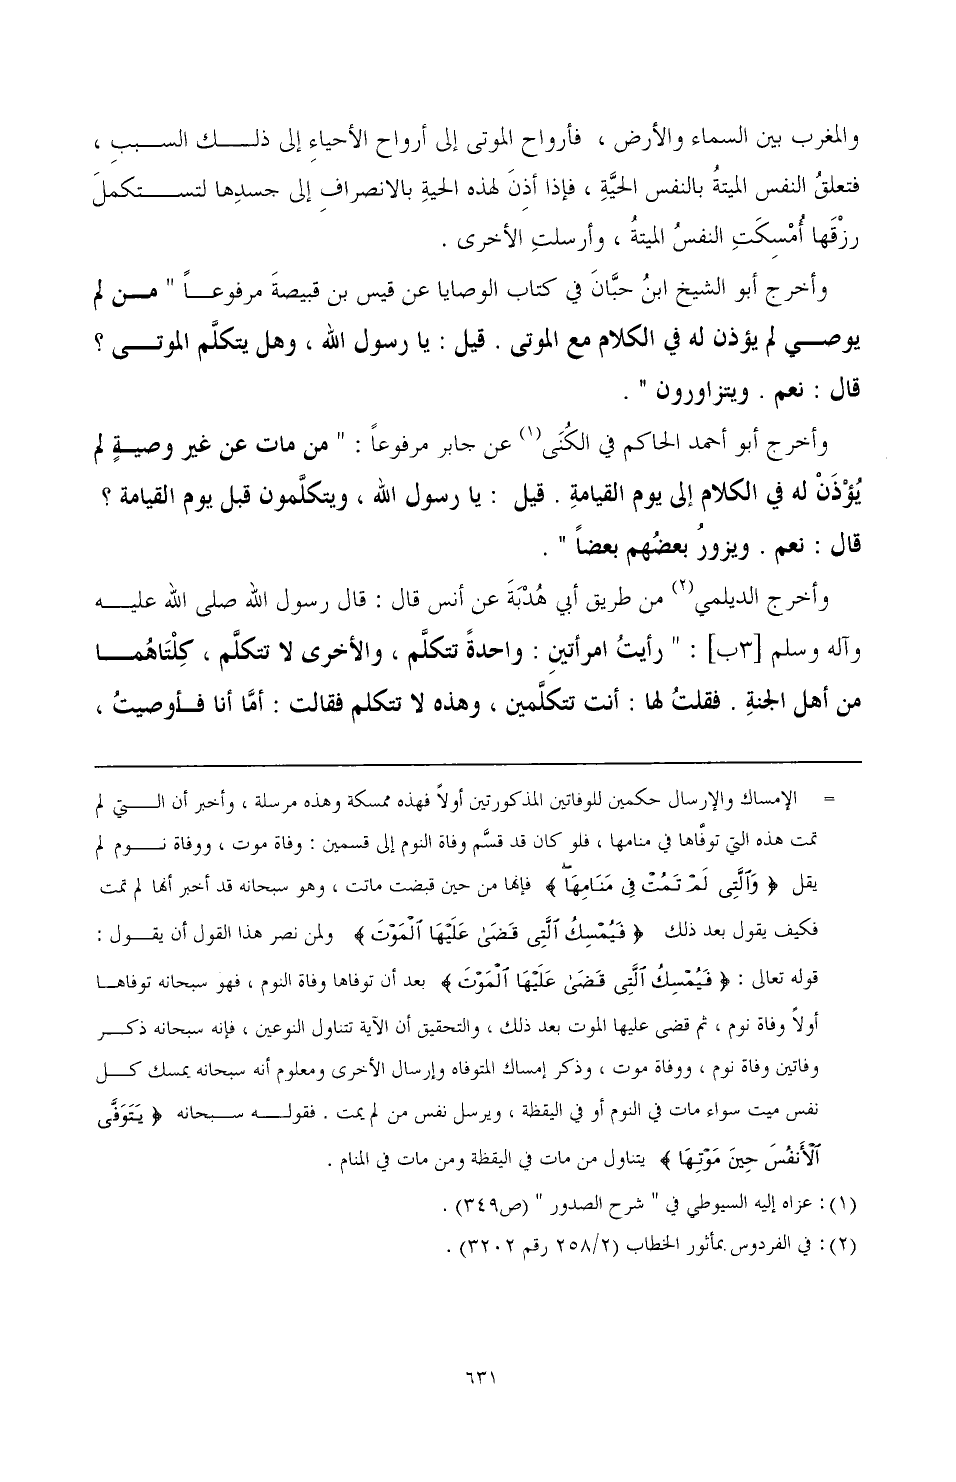 والمغرب بين السماء والأرض ، فأرواح الموتى إلى أرواح الأحياءِ إلى ذلــك الســببِ ،
فتعلقُ النفس الميتةُ بالنفس الحيَّةِ ، فإذا أذِنَ لهذه الحيةِ بالانصرافِ إلى جسدِها لتســتكملَ
رزْقَها أُمْسِكَتِ النفسُ الميتةُ ، وأرسلتِ الأخرى .
وأخرج أبو الشيخ ابنُ حبَّانَ في كتاب الوصايا عن قيس بن قبيصةَ مرفوعــاً " مــن لم
يوصــي لم يؤذن له في الكلام مع الموتى . قيل : يا رسول الله ، وهل يتكلَّم الموتــى ؟
قال : نعم . ويتزاورون " .
وأخرج أبو أحمد الحاكم في الكُنَى(١) عن جابر مرفوعاً : " من مات عن غير وصيــةٍ لم
يُؤْذَنْ له في الكلام إلى يوم القيامةِ . قيل : يا رسول الله ، ويتكلَّمون قبل يوم القيامة ؟
قال : نعم . ويزورُ بعضُهم بعضاً " .
وأخرج الديلمي(٢) من طريق أبي هُدْبَةَ عن أنس قال : قال رسول الله صلى الله عليــه
وآله وسلم [٣ب] : " رأيتُ امرأتينِ : واحدةً تتكلَّم ، والأخرى لا تتكلَّم ، كِلْتَاهُمــا
من أهل الجنةِ . فقلتُ لها : أنت تتكلَّمين ، وهذه لا تتكلم فقالت : أمَّا أنا فــأوصيتُ ،
= الإمساك والإرسال حكمين للوفاتين المذكورتين أولاً فهذه ممسكة وهذه مرسلة ، وأخبر أن الــتي لم
تمت هذه التي توفَّاها في منامها ، فلو كان قد قسَّم وفاة النوم إلى قسمين : وفاة موت ، ووفاة نــوم لم
يقل ﴿ وَٱلَّتِى لَمْ تَمُتْ فِى مَنَامِهَا ۖ ﴾ فإنها من حين قبضت ماتت ، وهو سبحانه قد أخبر أنها لم تمت
فكيف يقول بعد ذلك ﴿ فَيُمْسِكُ ٱلَّتِى قَضَىٰ عَلَيْهَا ٱلْمَوْتَ ﴾ ولمن نصر هذا القول أن يقــول :
قوله تعالى : ﴿ فَيُمْسِكُ ٱلَّتِى قَضَىٰ عَلَيْهَا ٱلْمَوْتَ ﴾ بعد أن توفاها وفاة النوم ، فهو سبحانه توفاهــا
أولاً وفاة نوم ، ثم قضى عليها الموت بعد ذلك ، والتحقيق أن الآية تتناول النوعين ، فإنه سبحانه ذكــر
وفاتين وفاة نوم ، ووفاة موت ، وذكر إمساك المتوفاه وإرسال الأخرى ومعلوم أنه سبحانه يمسك كــل
نفس ميت سواء مات في النوم أو في اليقظة ، ويرسل نفس من لم يمت . فقولــه ســبحانه ﴿ يَتَوَفَّى
ٱلْأَنفُسَ حِينَ مَوْتِهَا ﴾ يتناول من مات في اليقظة ومن مات في المنام .
(١) : عزاه إليه السيوطي في " شرح الصدور " (ص٣٤٩) .
(٢) : في الفردوس بمأثور الخطاب (٢/٢٥٨ رقم ٣٢٠٢) .
٦٣١